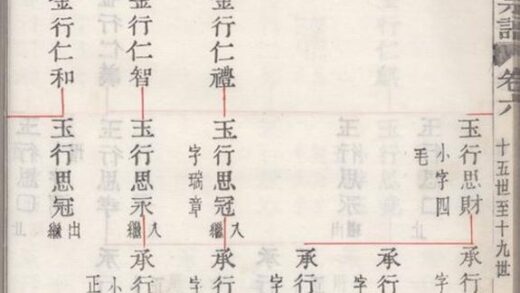 譜
卷六
十五世至十九世
金行仁禮
金行仁智
金行仁和
玉行思財
小字四
毛
玉行思冠
入繼
字瑞章
玉行思永
入繼
玉行思冠
出繼
承行
字
承行
字
承行
字
承行
小
正